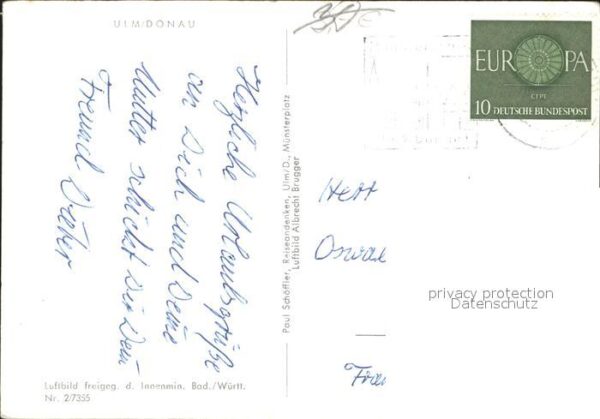 ULM/DONAU
Herzliche Urlaubsgrüße
an Dich und Deine
Mutter schickt Dir Dein
Freund Dieter
Luftbild freigeg. d. Innenmin. Bad./Württ.
Nr. 2/7355
Paul Schöffler, Reiseandenken, Ulm/D., Münsterplatz
Luftbild Albrecht Brugger
EUROPA
CEPT
10 DEUTSCHE BUNDESPOST
Herr
Oswal
privacy protection
Datenschutz
Fran